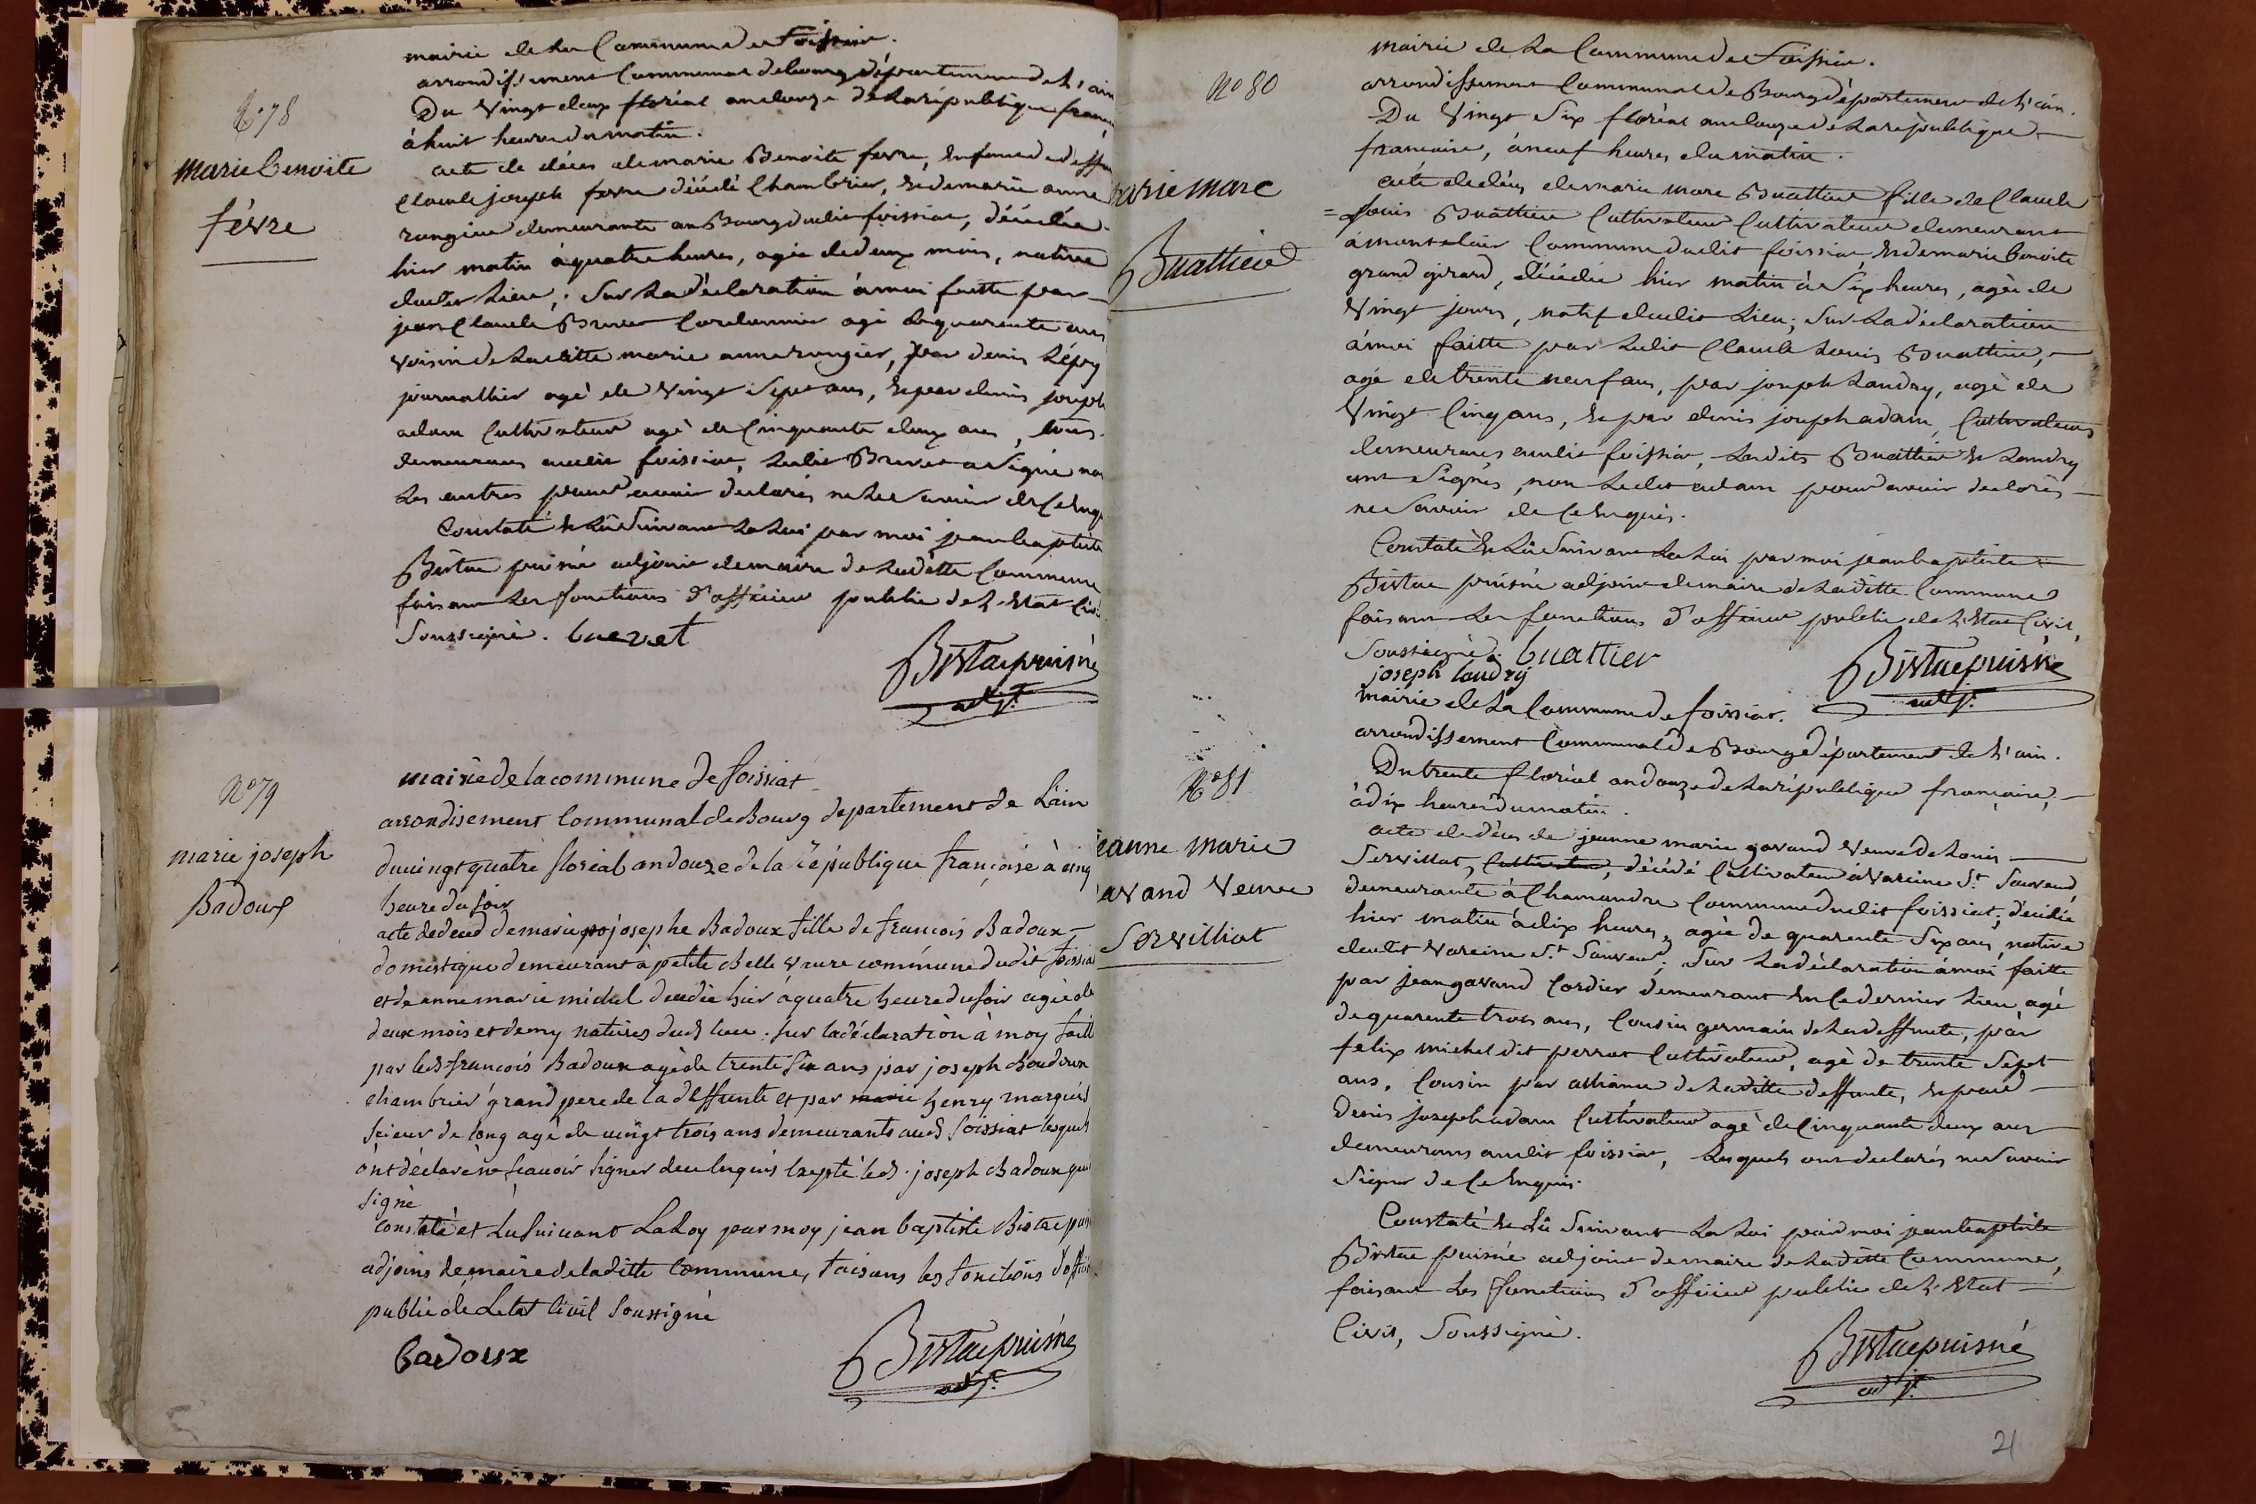 N° 78
marie benoite
févre
mairie de la Commune de foissiat.
arrondissement Communal de bourg département de L'ain
Du Vingt deux floréal an douze de La république
à huit heures du matin.
acte de décès de marie Benoite fevre, 
Claude joseph fevre décédé Chambrier, et de marie anne
rongier demeurante au Bourg dudit foissiat, décédée
hier matin à quatre heures, agée de deux mois, native
dudit Lieu; Sur La déclaration à moi faitte par
jean Claude Brevet Cordonnier agé de quarente ans
voisin de Laditte marie anne rongier, par denis Lépoy
journallier agé de Vingt Sept ans, et par denis joseph
adam Cultivateur agé de Cinquante deux ans, tous
demeurans audit foissiat, Ledit Brevet a Signé non
Les autres pour avoir declarés ne Le Savoir de Ce
Constaté et Lû Suivant La Loi par moi jean baptiste
Bistac puisné adjoint de maire de Laditte Commune
faisant Les fonctions d'officier public de L'Etat
Soussigné. brevet
Bistac puisné
adjt.
N° 79
marie joseph
Badoux
mairie de la commune de foissiat
arrondisement Communal de Bourg departement de L'ain
du vingt quatre floréal an douze de la république françoise à cinq
heure du soir
acte de deced de marie josephe Badoux fille de francois Badoux
domestique demeurant à petite chelle vaure commune dudit
et de anne marie michel decedée hier à quatre heure du soir agée de
deux mois et demy natives dud lieu. sur la déclaration à moy
par led francois Badoux agé de trente six ans par joseph Badoux
chambrier grand pere de la deffunte et par marie henry
scieur de long agé de vingt trois ans demeurants aud foissiat
ont déclaré ne scavoir signer de ce enquis Excepté led. joseph Badoux
signé
constaté et Lu suivant La Loy par moy jean baptiste Bistac
adjoint de maire de laditte Commune, faisans les fonctions
public de Letat civil soussigné
badoux
Bistac puisné
adjt.
N° 80
marie marc
Buattier
mairie de La Commune de foissiat.
arrondissement Communal de Bourg département de L'ain.
Du Vingt Six floréal an douze de La république
francaise, à neuf heures du matin.
acte de décès de marie marc Buattier fille de Claude
Louis Buattier Cultivateur Cultivateur demeurant
à montclair Commune dudit foissiat et de marie benoite
grand girard, décédée hier matin à Six heures, agée de
Vingt jours, natif dudit Lieu; Sur La déclaration
à moi faitte par Ledit Claude Louis Buattier,
agé de trente neuf ans, par joseph Landry, agé de
Vingt Cinq ans, et par denis joseph adam, Cultivateurs
demeurans audit foissiat, Lesdits Buattier et Landry
ont Signés, non Ledit adam pour avoir declarés
ne Savoir de Ce Enquis.
Constaté et Lû Suivant La Loi par moi jean baptiste
Bistac puisné adjoint de maire de Laditte Commune
faisant Les fonctions d'officier public de L'Etat Civil,
Soussigné. buattier
joseph landry
Bistac puisné
adjt.
N° 81
jeanne marie
gavand Veuve
Servilliat
mairie de La Commune de foissiat.
arrondissement Communal de Bourg département de L'ain.
Du trente floréal an douze de La république française,
à dix heures du matin.
acte de décès de jeanne marie gavand Veuve de Louis
Servillat, Cultivateur, décédé Cultivateur à Vareine St. Sauveur,
demeurante à Chamandre Commune dudit foissiat, décédée
hier matin à dix heures, agée de quarente Six ans, native
dudit Vareine St. Sauveur; Sur La déclaration à moi faitte
par jean gavand Cordier demeurant En Ce dernier Lieu agé
de quarente trois ans, Cousin germain de La deffunte, par
felix michel dit perrat Cultivateur, agé de trente Sept
ans, Cousin par alliance de Laditte deffunte, et par
denis joseph adam Cultivateur agé de Cinquante deux ans
demeurans audit foissiat, Lesquels ont declarés ne Savoir
Signer de Ce Enquis.
Constaté et Lû Suivant La Loi par moi jean baptiste
Bistac puisné adjoint de maire de Laditte Commune,
faisant Les fonctions d'officier public de L'Etat
Civil, Soussigné.
Bistac puisné
adjt.
21